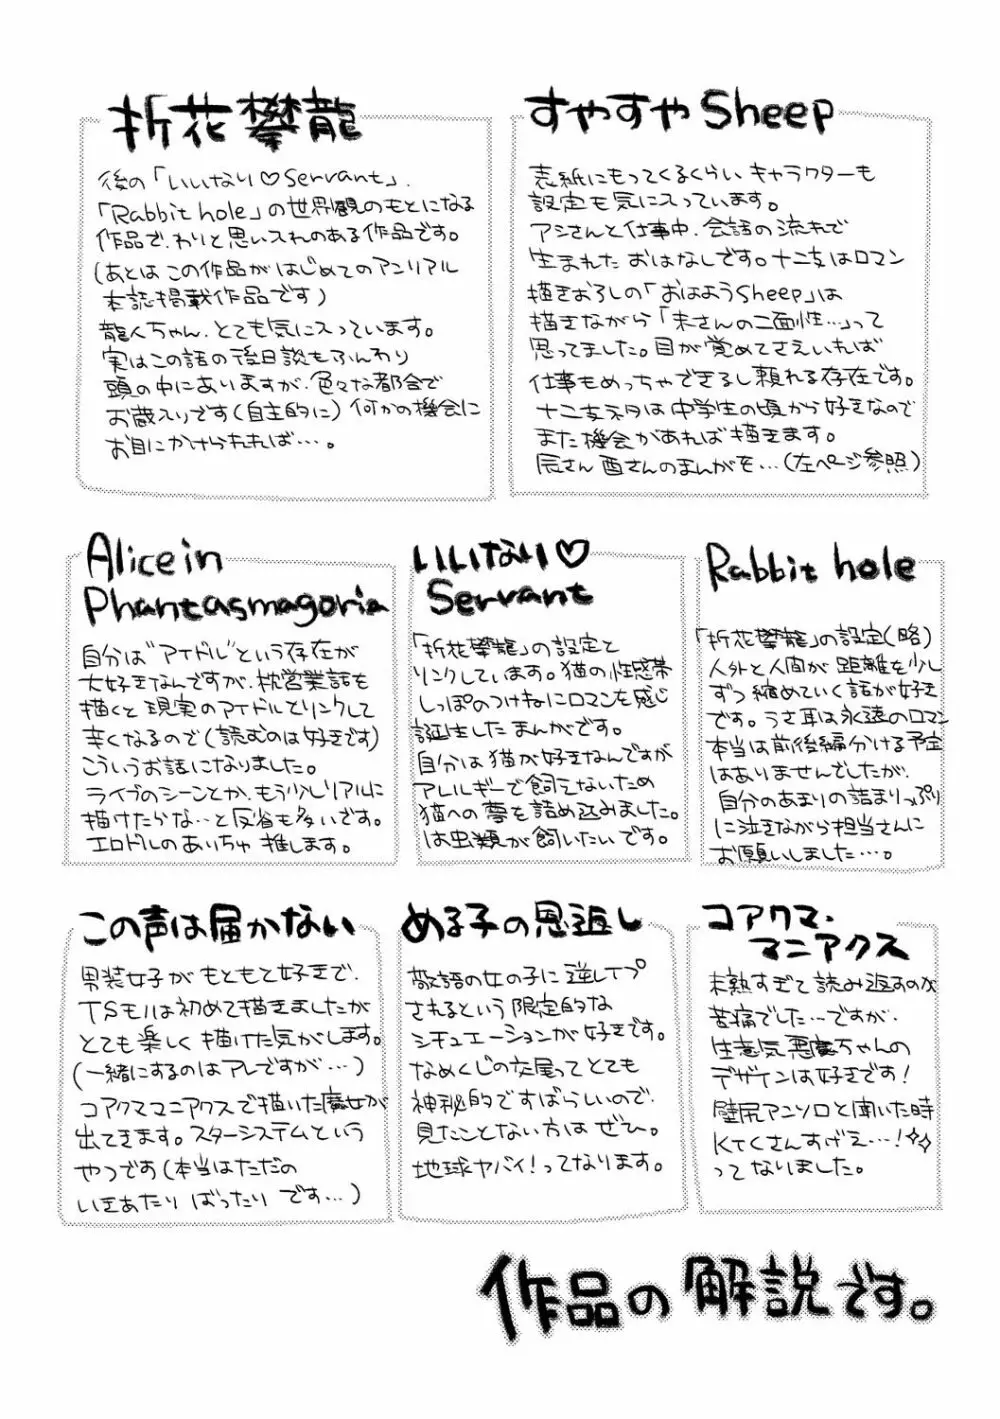 折花攀龍
後の「いいなり♡Servant」、
「Rabbit hole」の世界観のもとになる
作品で、わりと思い入れのある作品です。
(あとはこの作品がはじめてのアンリアル
本誌掲載作品です)
龍人ちゃん、とても気に入っています。
実はこの話の後日談もふんわり
頭の中にありますが、色々な都合で
お蔵入りです(自主的に)何かの機会に
お目にかけられれば…。
すやすやSheep
表紙にもってくるくらいキャラクターも
設定も気に入っています。
アシさんと仕事中、会話の流れで
生まれたおはなしです。十二支はロマン
描きおろしの「おはようSheep」は
描きながら「未さんの二面性…」って
思ってました。目が覚めてさえいれば
仕事もめっちゃできるし頼れる存在です。
十二支ネタは中学生の頃から好きなので
また機会があれば描きます。
辰さん酉さんのまんがを…(左ページ参照)
Alice in
Phantasmagoria
自分は"アイドル"という存在が
大好きなんですが、枕営業話を
描くと現実のアイドルとリンクして
辛くなるので(読むのは好きです)
こういうお話になりました。
ライブのシーンとか、もう少しリアルに
描けたらな…と反省も多いです。
エロドルのありちゃ推します。
いいなり♡
Servant
「折花攀龍」の設定と
リンクしています。猫の性感帯
しっぽのつけねにロマンを感じ
誕生したまんがです。
自分は猫が好きなんですが
アレルギーで飼えないため
猫への夢を詰め込みました。
は虫類が飼いたいです。
Rabbit hole
「折花攀龍」の設定(略)
人外と人間が距離を少し
ずつ縮めていく話が好き
です。うさ耳は永遠のロマン
本当は前後編分ける予定
はありませんでしたが、
自分のあまりの詰まりっぷり
に泣きながら担当さんに
お願いしました…。
この声は届かない
男装女子がもともと好きで、
TSモノは初めて描きましたが
とても楽しく描けた気がします。
(一緒にするのはアレですが…)
コアクママニアクスで描いた魔女が
出てきます。スターシステムという
やつです(本当はただの
いきあたりばったりです…)
める子の恩返し
敬語の女の子に逆レイプ
されるという限定的な
シチュエーションが好きです。
なめくじの交尾ってとても
神秘的ですばらしいので、
見たことない方はぜひ。
地球ヤバイ!ってなります。
コアクマ・
マニアクス
未熟すぎて読み返すのが
苦痛でした…ですが、
生意気悪魔ちゃんの
デザインは好きです!
壁尻アンソロと聞いた時
KTCさんすげえ…!
ってなりました。
作品の解説です。